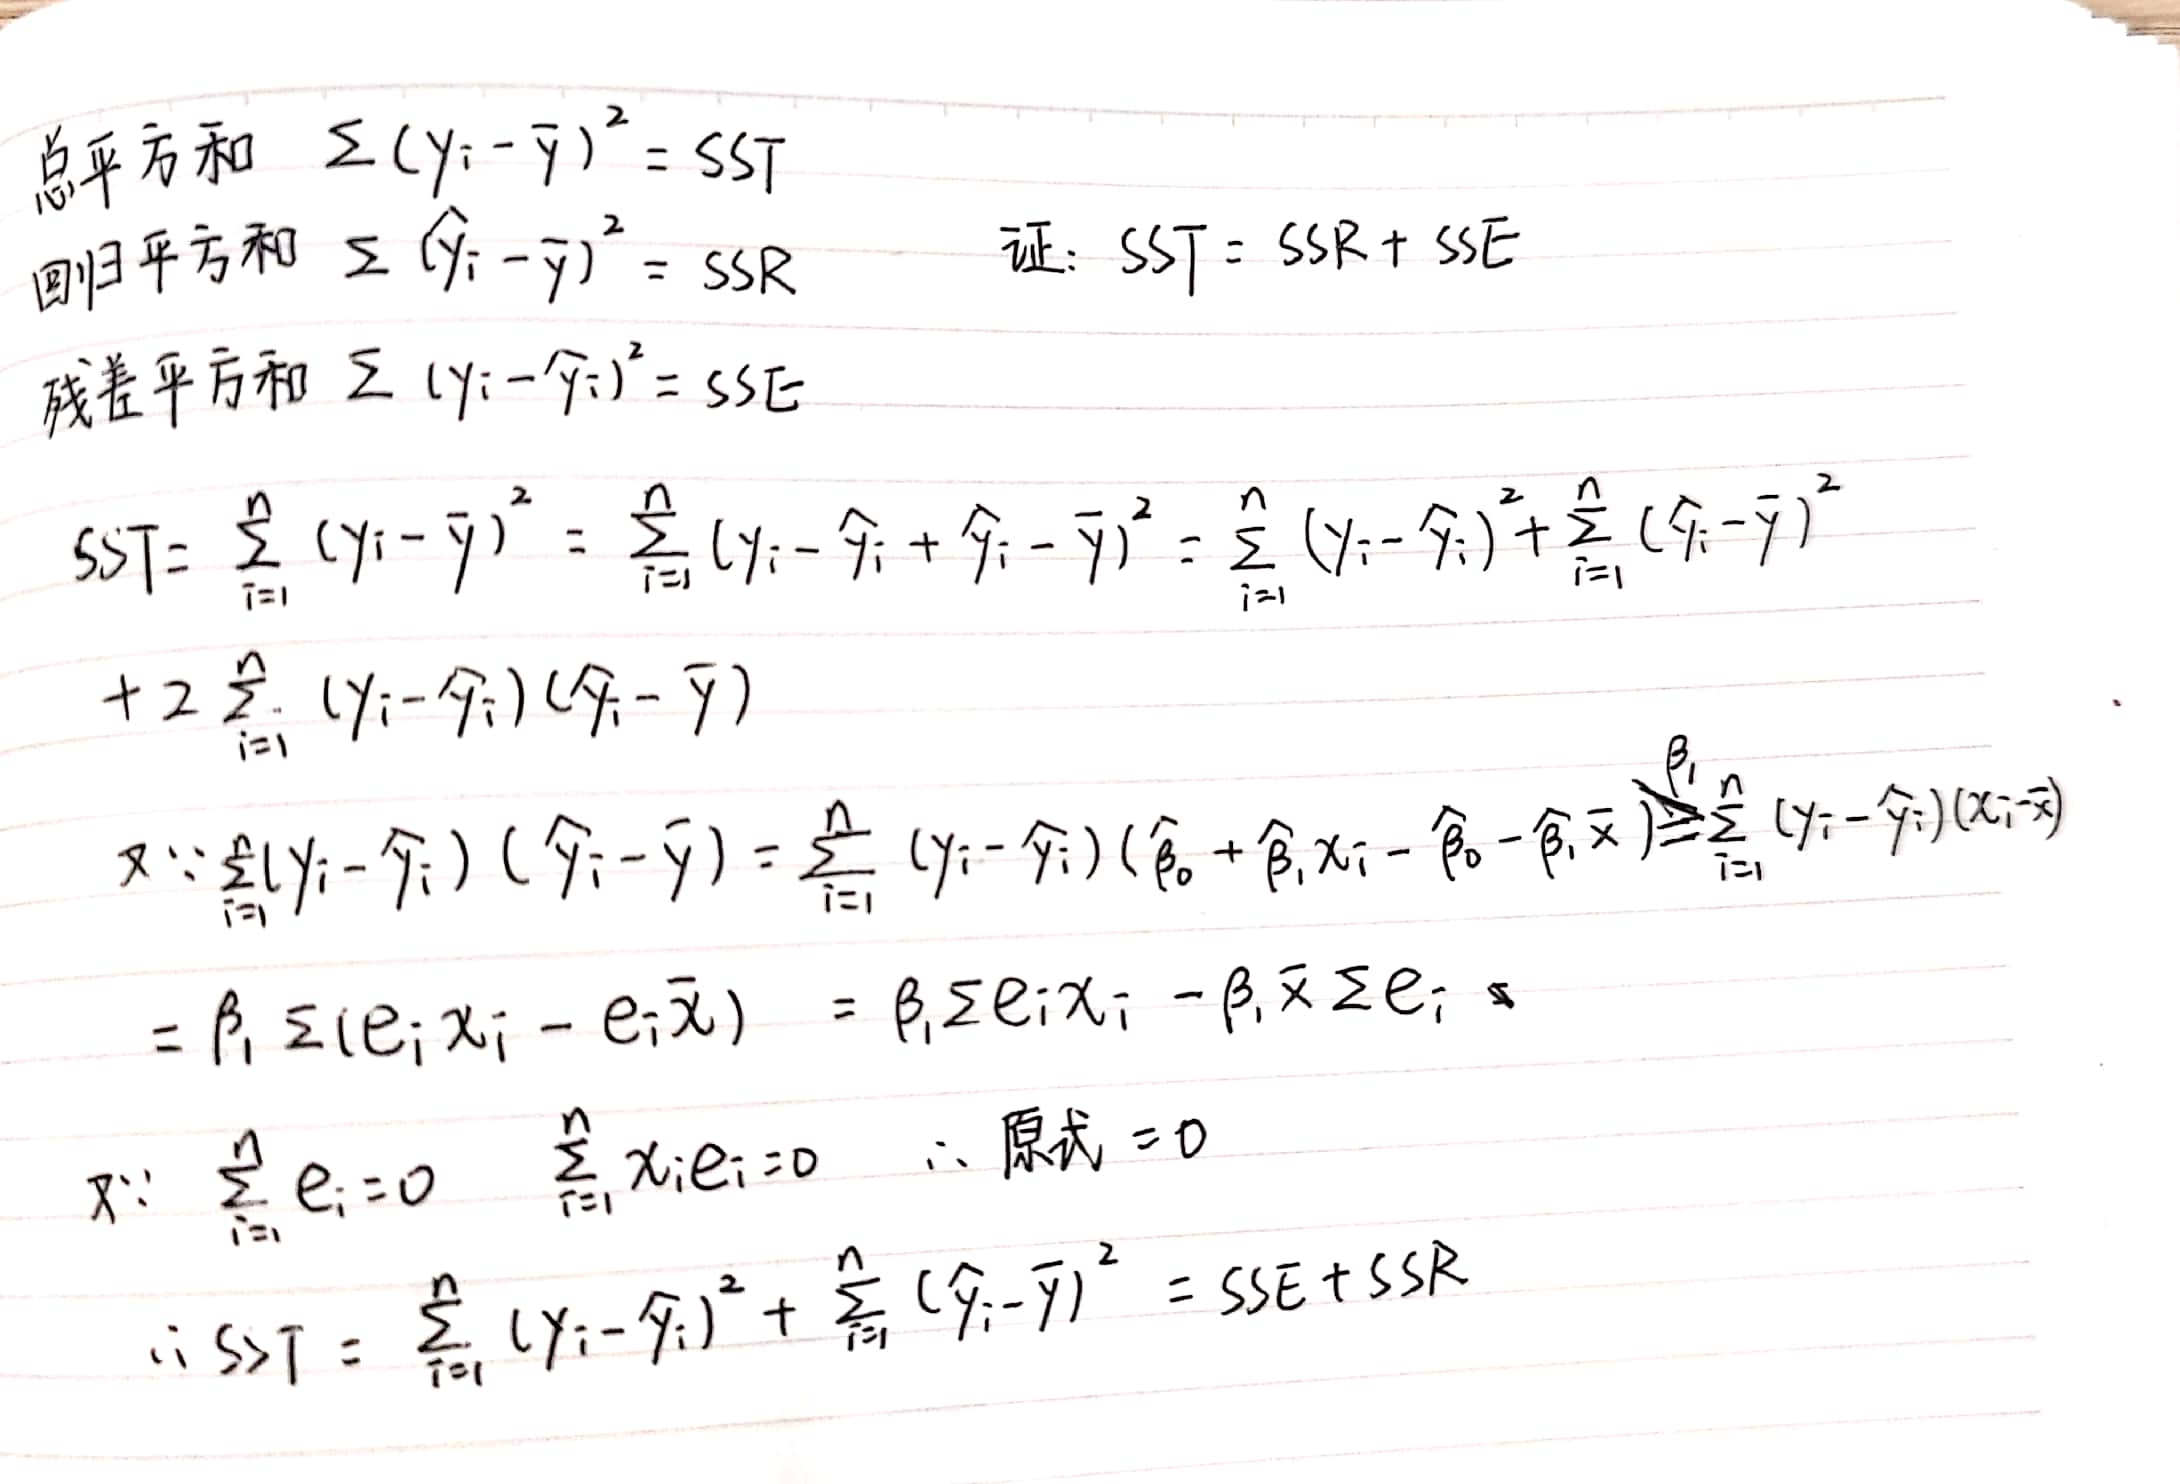 总平方和 Σ(yᵢ-ȳ)² = SST
回归平方和 Σ(ŷᵢ-ȳ)² = SSR 证: SST = SSR + SSE
残差平方和 Σ(yᵢ-ŷᵢ)² = SSE
SST = Σ_{i=1}^{n} (yᵢ-ȳ)² = Σ_{i=1}^{n} (yᵢ-ŷᵢ+ŷᵢ-ȳ)² = Σ_{i=1}^{n} (yᵢ-ŷᵢ)² + Σ_{i=1}^{n} (ŷᵢ-ȳ)²
+ 2 Σ_{i=1}^{n} (yᵢ-ŷᵢ)(ŷᵢ-ȳ)
又∵ Σ_{i=1}^{n} (yᵢ-ŷᵢ)(ŷᵢ-ȳ) = Σ_{i=1}^{n} (yᵢ-ŷᵢ)(β̂₀+β̂₁xᵢ-β̂₀-β̂₁x̄) = β₁ Σ_{i=1}^{n} (yᵢ-ŷᵢ)(xᵢ-x̄)
= β₁Σ(eᵢxᵢ - eᵢx̄) = β₁Σeᵢxᵢ - β₁x̄Σeᵢ
又∵ Σ_{i=1}^{n} eᵢ=0 Σ_{i=1}^{n} xᵢeᵢ=0 ∴ 原式 = 0
∴ SST = Σ_{i=1}^{n} (yᵢ-ŷᵢ)² + Σ_{i=1}^{n} (ŷᵢ-ȳ)² = SSE + SSR